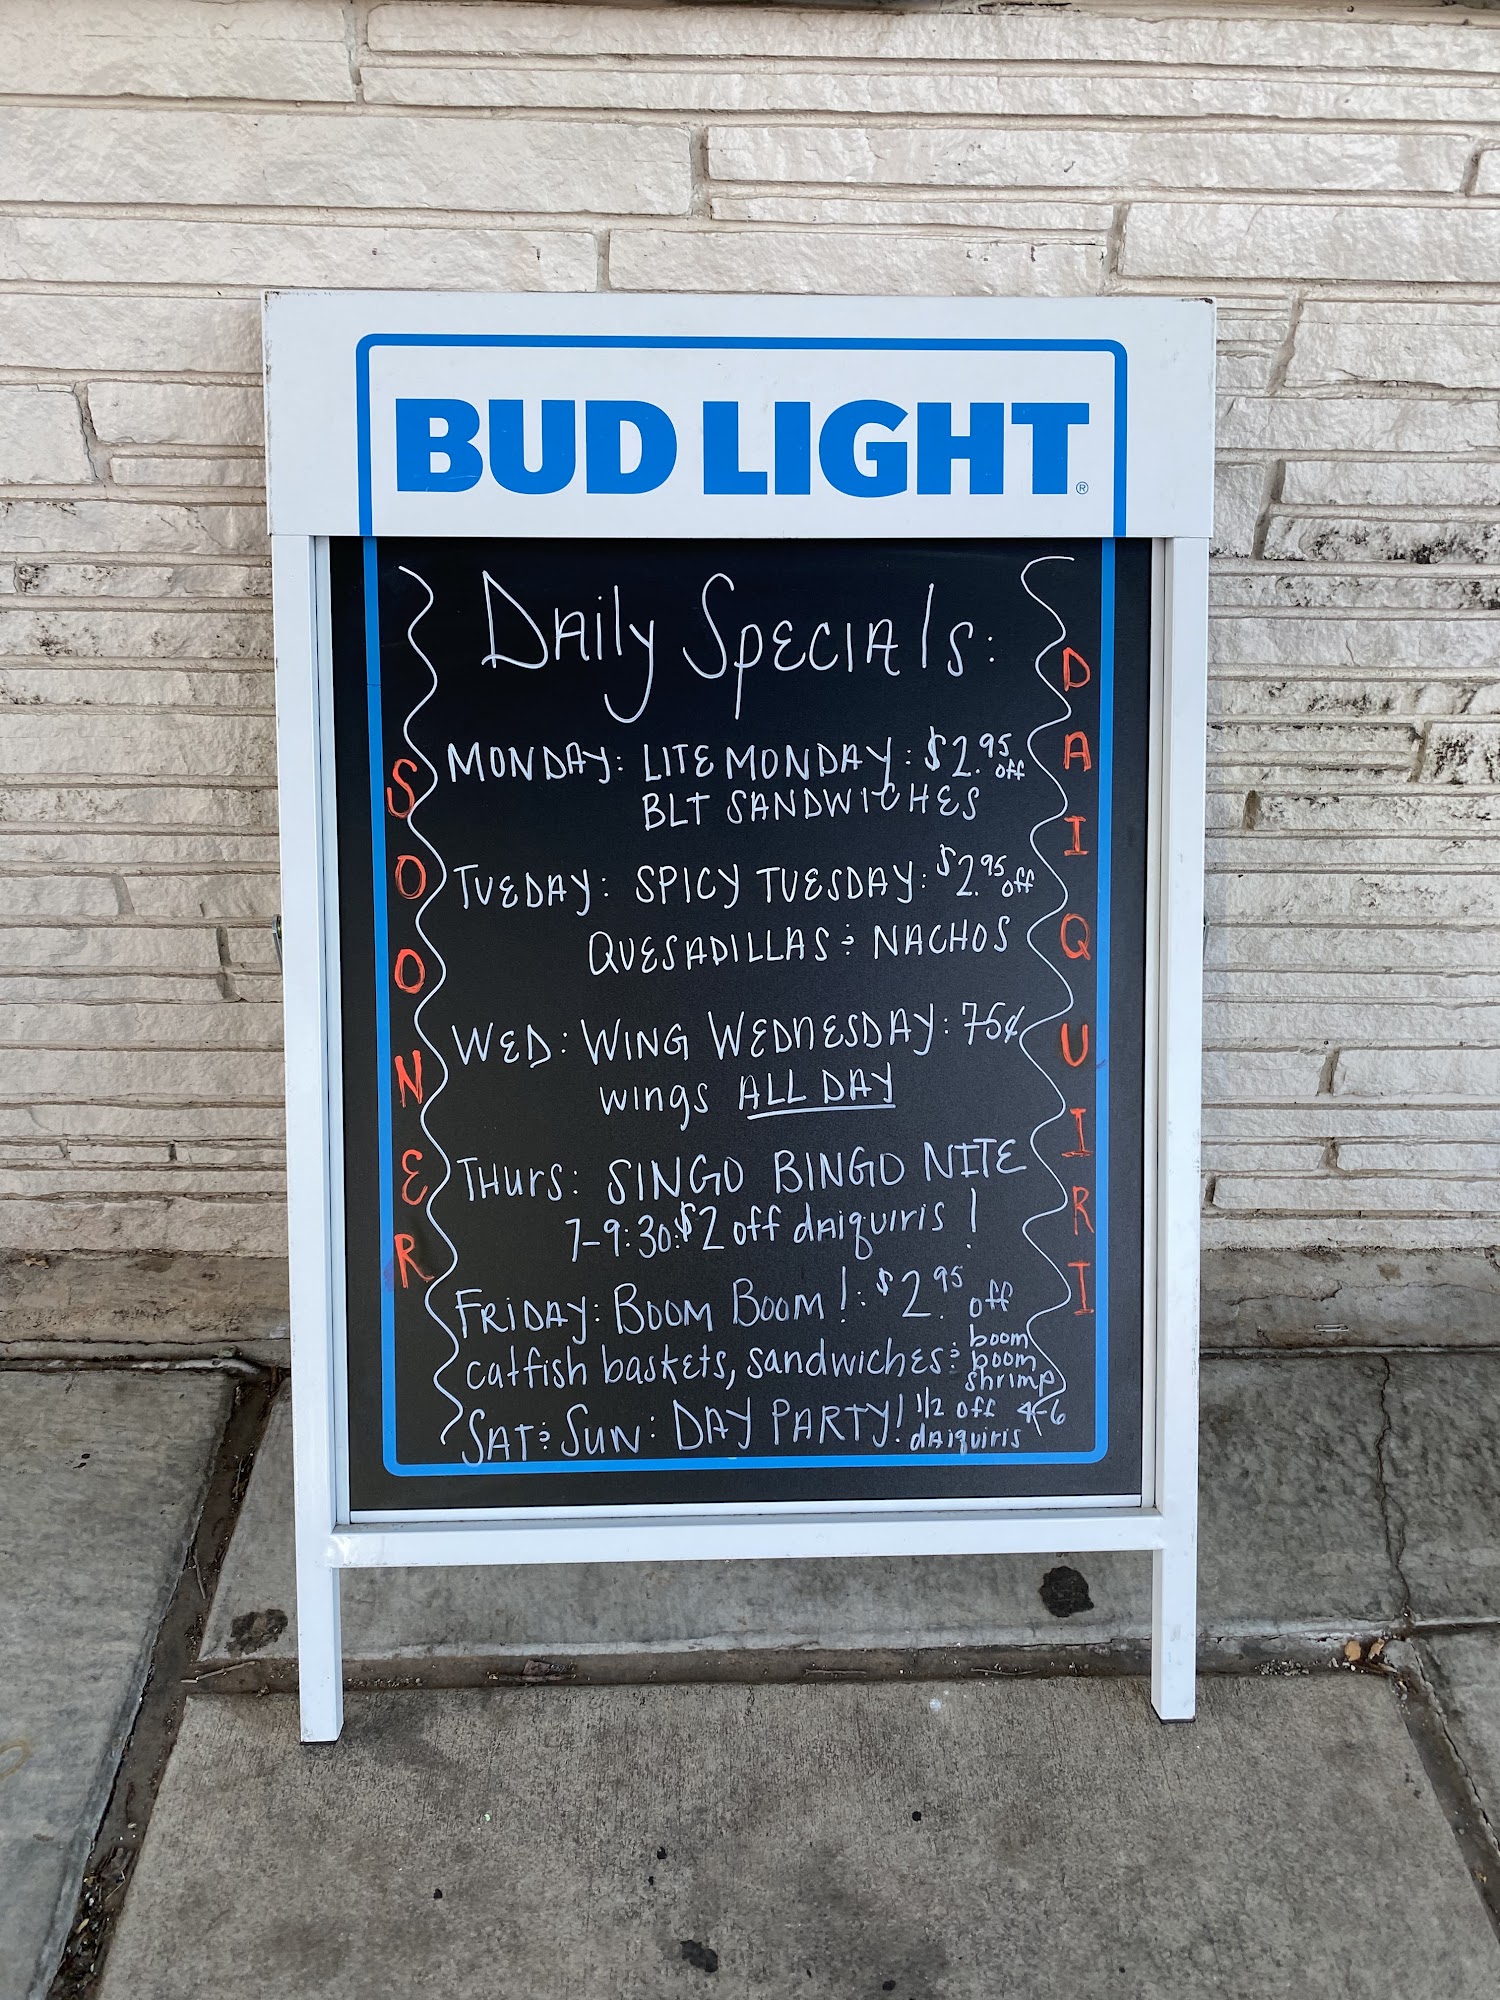 BUD LIGHT®
Daily Specials:
MONDAY: LITE MONDAY: $2.95 off
BLT SANDWICHES
TUEDAY: SPICY TUESDAY: $2.95 off
QUESADILLAS & NACHOS
WED: WING WEDNESDAY: 75¢
wings ALL DAY
THURS: SINGO BINGO NITE
7-9:30: $2 off daiquiris!
FRIDAY: BOOM BOOM!: $2.95 off
catfish baskets, sandwiches & boom boom shrimp
SAT & SUN: DAY PARTY! 1/2 off 4-6
daiquiris
SOONER
DAIQUIRI